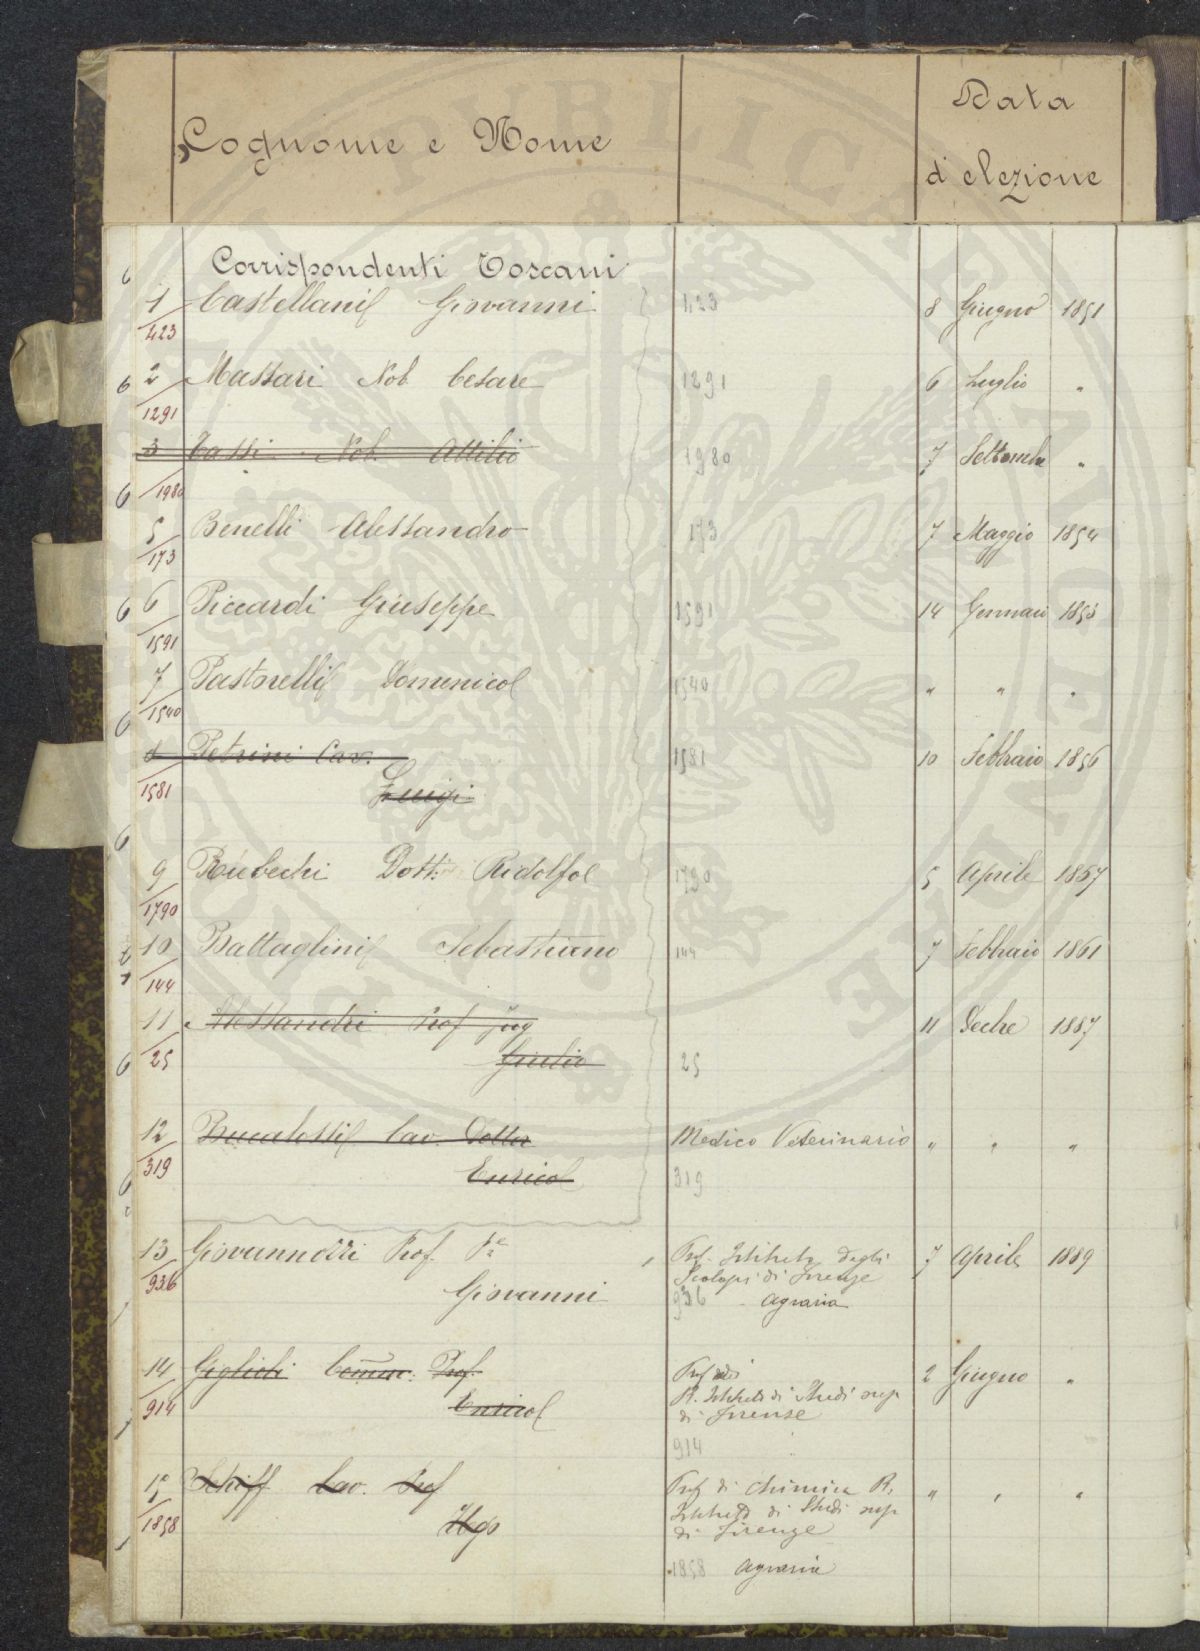 Cognome e Nome
Data
di elezione
Corrispondenti Toscani
1 Castellani Giovanni 423 8 Giugno 1851
423
6 2 Massari Nob. Cesare 1291 6 Luglio "
1291
3 Tassi Nob. Attilio 1980 7 Settembre "
6 1980
5 Benelli Alessandro 173 7 Maggio 1854
173
6 6 Piccardi Giuseppe 1591 14 Gennaio 1855
1591
7 Pastorelli Domenico 1540 " " "
1540
8 Petrini Cav. 1581 10 Febbraio 1856
1581 Luigi
9 Rubechi Dott: Ridolfo 1790 5 Aprile 1857
1790
10 Battaglini Sebastiano 144 7 Febbraio 1861
144
11 Alessandri Prof Ing 11 Decbre 1887
25 Giulio 25
12 Bucalossi Cav. Dottor Medico Veterinario " " "
319 Enrico 319
13 Giovannozzi Prof. Pe Prof. Istituto degli 7 Aprile 1889
936 Scolopi di Firenze
Giovanni 936 Agraria
14 Giglioli Comm. Prof. Prof nel 2 Giugno "
914 Enrico R. Istituto di Studi sup
di Firenze
914
15 Schiff Cav. Prof Prof di chimica R. " " "
1858 Ugo Istituto di Studi sup
di Firenze
1858 Agraria